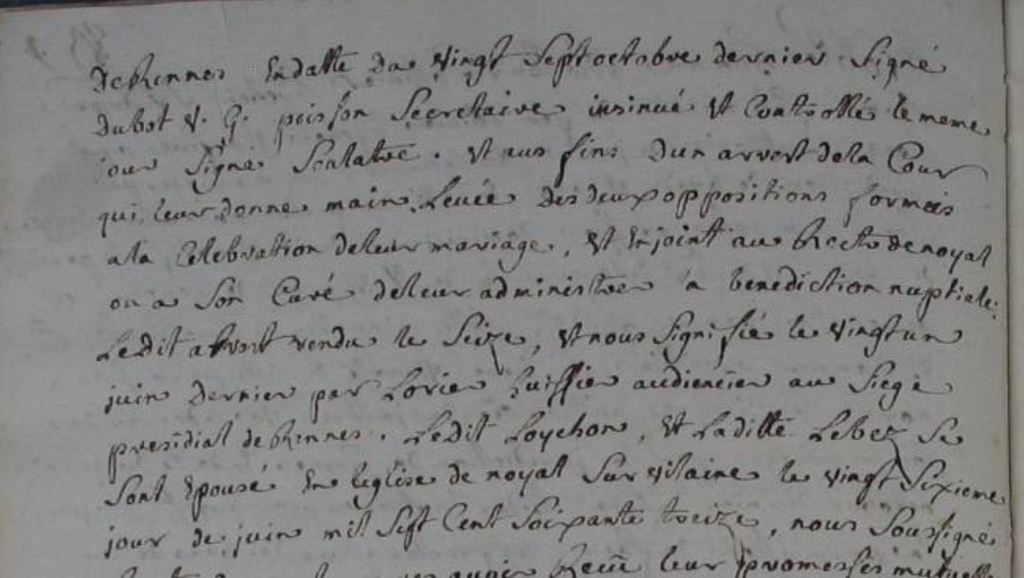 de Rennes En datte du vingt Sept octobre dernier Signé
dubot v. G. poisson Secretaire insinué et Controllé le meme
jour Signé . et aux fins d'un arrest de la Cour
qui leur donne main Levée des deux oppositions formeés
a la Célébration de leur mariage, et Enjoint au Rectr de noyal
ou a Son Curé de leur administrer la benediction nuptiale.
Ledit arrest rendu le Seize, et nous Signifié le vingt un
juin dernier par Lorier huissier audiencier au Siege
presidial de Rennes. Ledit Loyehon, et Laditte Lebez Se
Sont Epousé En leglise de noyal Sur vilaine le vingt Sixieme
jour de juin mil Sept Cent Soixante treize, nous Soussigné
Receu leur promesses mutuelles